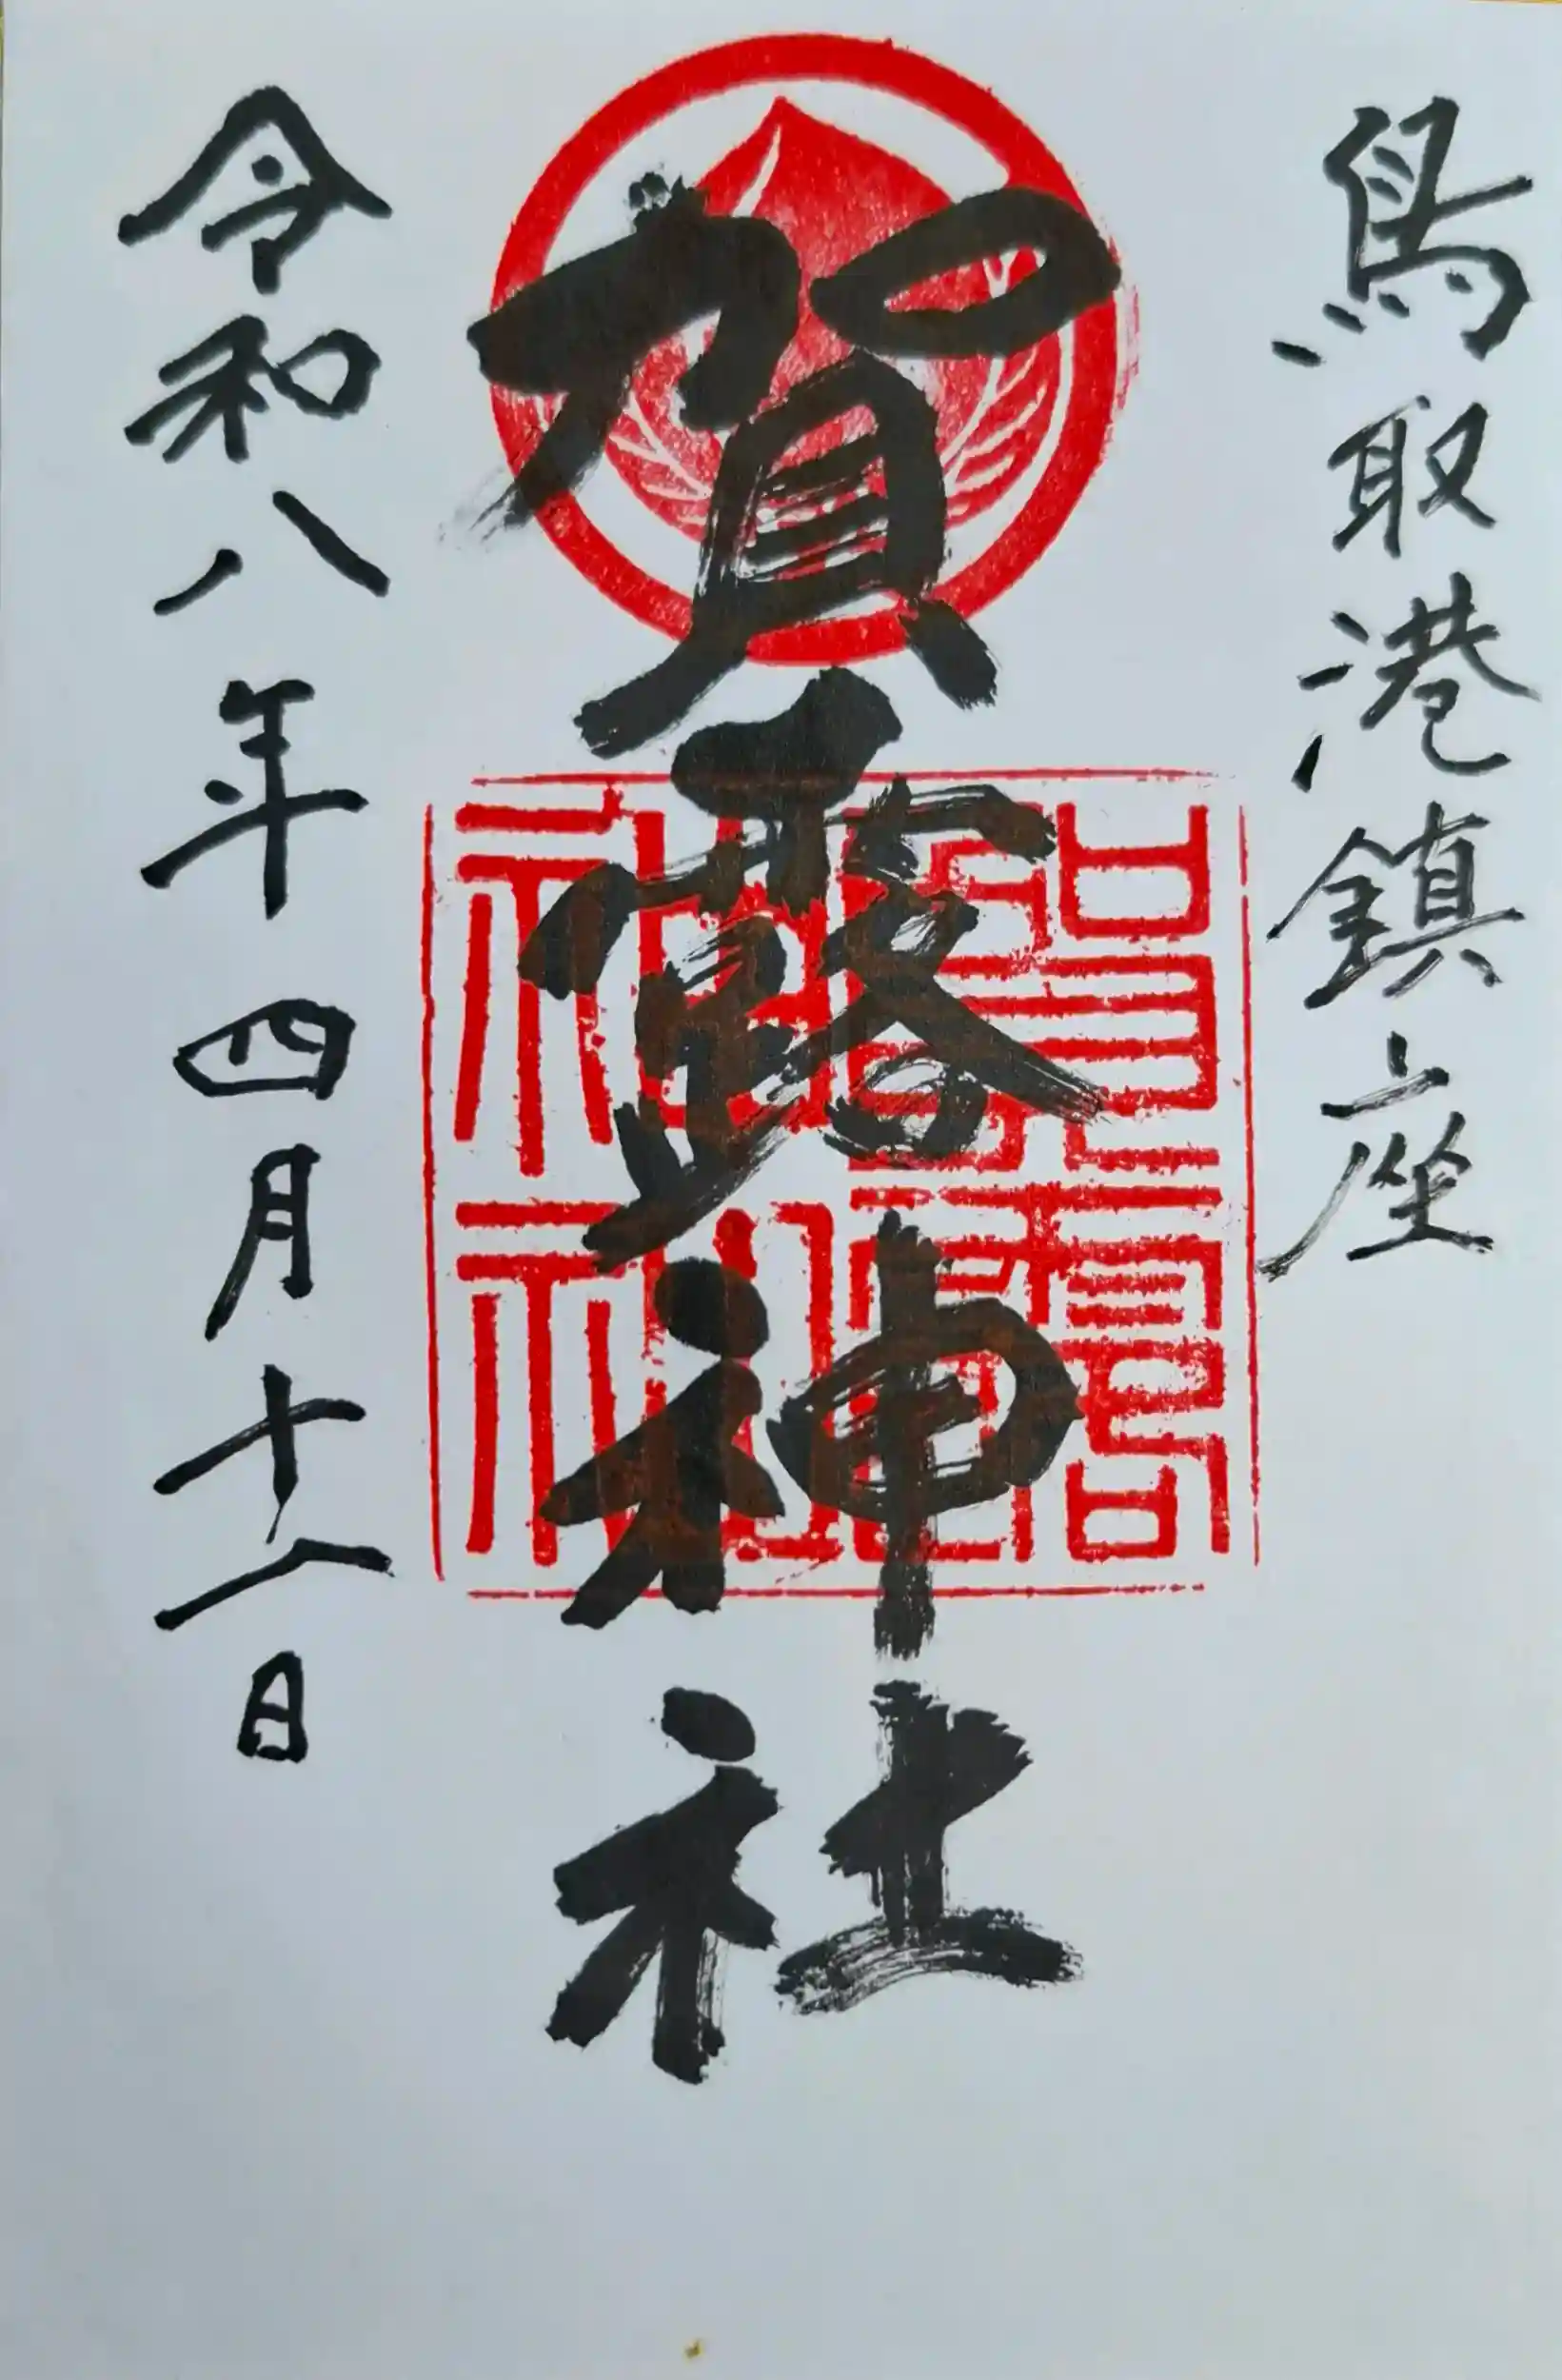 鳥取港鎮座
賀露神社
賀露
神社
令和八年四月十八日